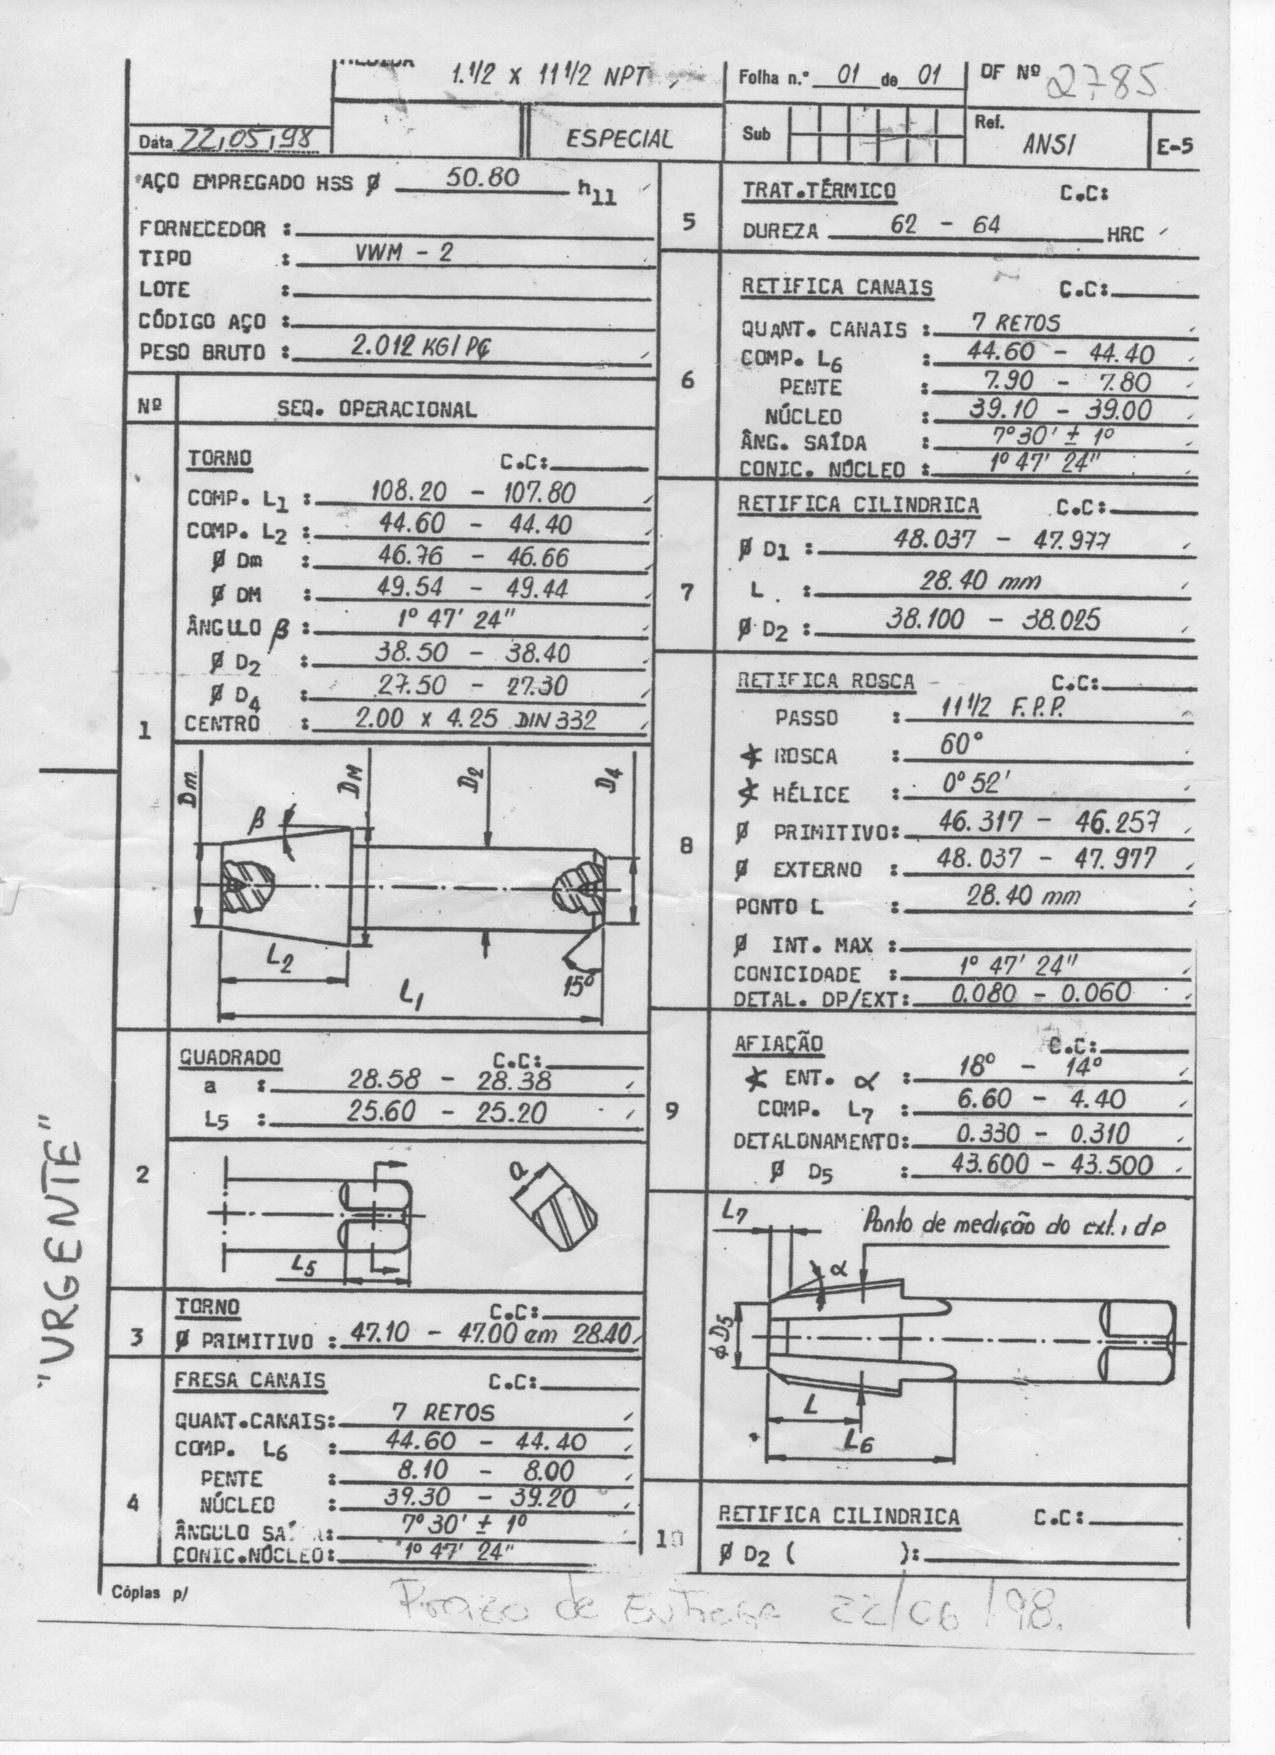 MEDIDA 1.1/2 x 11 1/2 NPT
Folha n.º 01 de 01
OF Nº 2785
Data 22,05,98
ESPECIAL
Sub
Ref. ANSI
E-5
AÇO EMPREGADO HSS Ø 50.80 h11
FORNECEDOR :
TIPO : VWM - 2
LOTE :
CÓDIGO AÇO :
PESO BRUTO : 2.012 KG/PÇ
Nº SEQ. OPERACIONAL
1
TORNO C.C:
COMP. L1 : 108.20 - 107.80
COMP. L2 : 44.60 - 44.40
Ø Dm : 46.76 - 46.66
Ø DM : 49.54 - 49.44
ÂNGULO β : 1º 47' 24"
Ø D2 : 38.50 - 38.40
Ø D4 : 27.50 - 27.30
CENTRO : 2.00 x 4.25 DIN 332
Dm β DM D2 D4
L2
15º
L1
2
QUADRADO C.C:
a : 28.58 - 28.38
L5 : 25.60 - 25.20
a
L5
3
TORNO C.C:
Ø PRIMITIVO : 47.10 - 47.00 em 28.40
4
FRESA CANAIS C.C:
QUANT.CANAIS: 7 RETOS
COMP. L6 : 44.60 - 44.40
PENTE : 8.10 - 8.00
NÚCLEO : 39.30 - 39.20
ÂNGULO SA : 7º 30' ± 1º
CONIC.NÚCLEO: 1º 47' 24"
5
TRAT.TÉRMICO C.C:
DUREZA 62 - 64 HRC
6
RETIFICA CANAIS C.C:
QUANT. CANAIS : 7 RETOS
COMP. L6 : 44.60 - 44.40
PENTE : 7.90 - 7.80
NÚCLEO : 39.10 - 39.00
ÂNG. SAÍDA : 7º30' ± 1º
CONIC. NÚCLEO : 1º 47' 24"
7
RETIFICA CILINDRICA C.C:
Ø D1 : 48.037 - 47.977
L : 28.40 mm
Ø D2 : 38.100 - 38.025
8
RETIFICA ROSCA C.C:
PASSO : 11 1/2 F.P.P.
∡ ROSCA : 60º
∡ HÉLICE : 0º 52'
Ø PRIMITIVO: 46.317 - 46.257
Ø EXTERNO : 48.037 - 47.977
PONTO L : 28.40 mm
Ø INT. MAX :
CONICIDADE : 1º 47' 24"
DETAL. DP/EXT: 0.080 - 0.060
9
AFIAÇÃO C.C:
∡ ENT. α : 18º - 14º
COMP. L7 : 6.60 - 4.40
DETALONAMENTO: 0.330 - 0.310
Ø D5 : 43.600 - 43.500
L7 Ponto de medição do ext. , dp
α
Ø D5
L
L6
10
RETIFICA CILINDRICA C.C:
Ø D2 ( ):
"URGENTE"
Cópias p/
Prazo de Entrega 22/06/98.